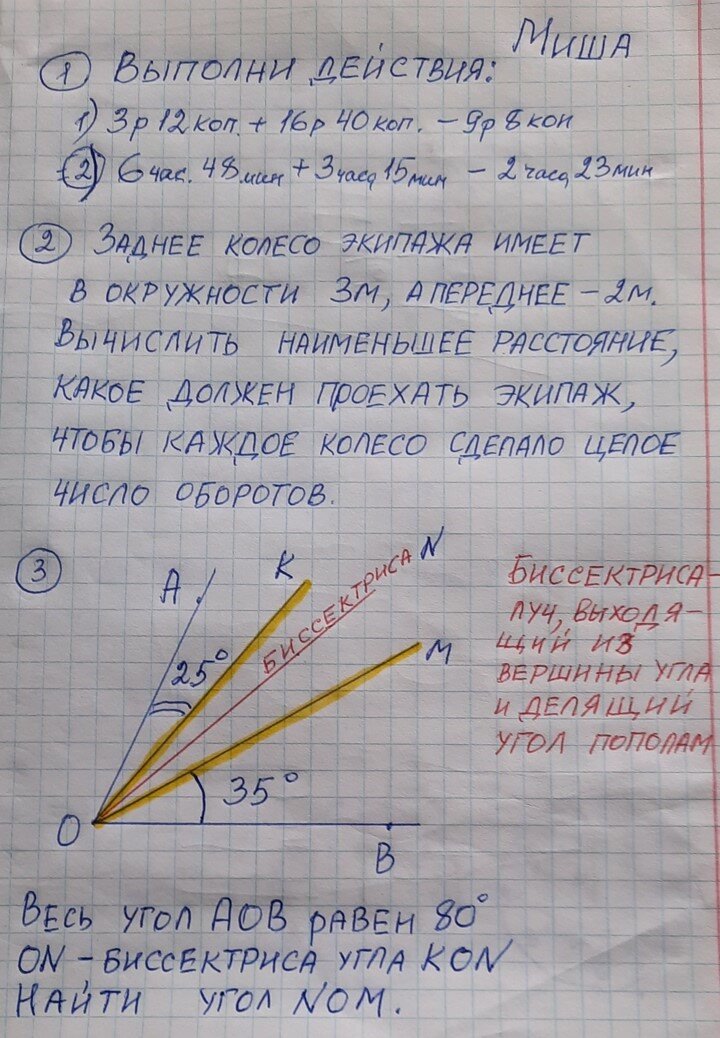 Миша
1 Выполни действия:
1) 3р 12 коп. + 16р 40 коп. – 9р 8 коп
2) 6 час. 48 мин + 3 часа 15 мин – 2 часа 23 мин
2 Заднее колесо экипажа имеет
в окружности 3м, а переднее – 2м.
Вычислить наименьшее расстояние,
какое должен проехать экипаж,
чтобы каждое колесо сделало целое
число оборотов.
3
A
K
БИССЕКТРИСА
N
M
25°
35°
O
B
Биссектриса –
луч, выходя-
щий из
вершины угла
и делящий
угол пополам
Весь угол AOB равен 80°
ON – биссектриса угла KON
Найти угол NOM.